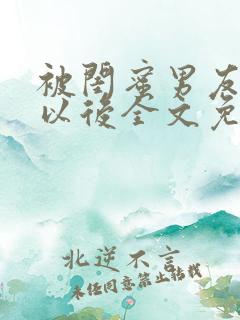 被閨蜜男友
以後全文免
北逆不言
未经同意禁止转载